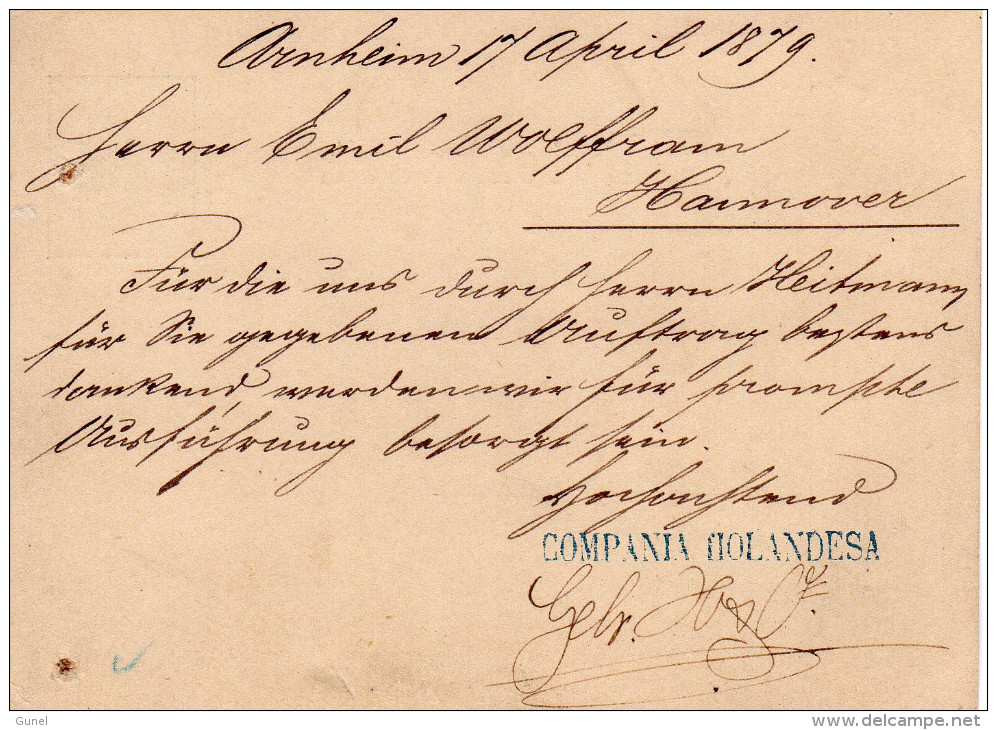 Arnheim 17 April 1879.
Herrn Emil Wolffram
Hannover
Für die uns durch Herrn Heitmann
für Sie gegebenen Auftrag bestens
dankend, werden wir für prompte
Ausführung besorgt sein.
Hochachtend
COMPANIA HOLANDESA
Gebr.
Gunel
www.delcampe.net